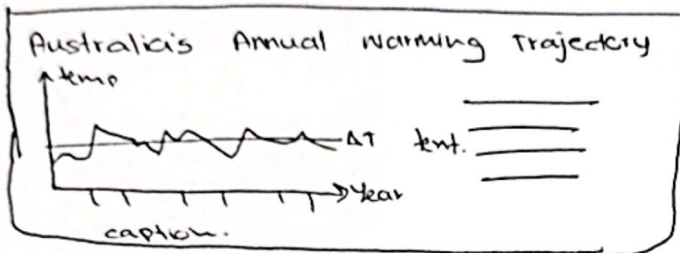 Australia's Annual Warming Trajectory
temp
ΔT
text.
Year
caption.